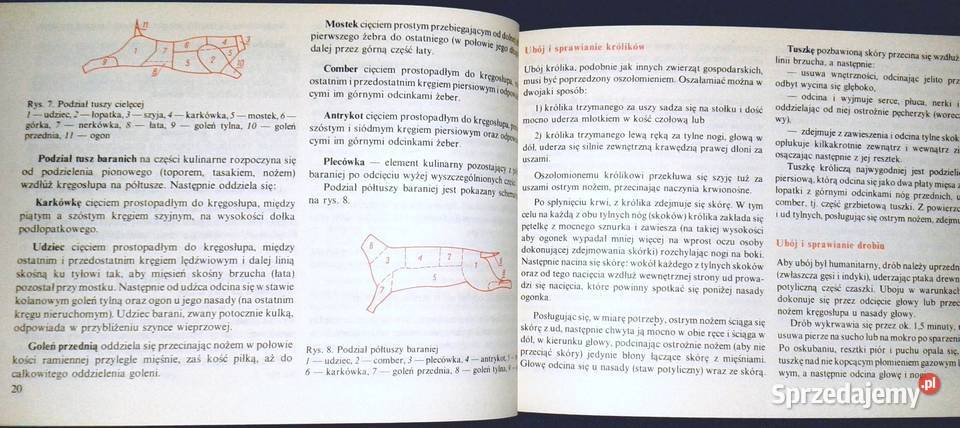 11
1
7
6
4
3
5
2
5
9
8
10
Rys. 7. Podział tuszy cielęcej
1 — udziec, 2 — łopatka, 3 — szyja, 4 — karkówka, 5 — mostek, 6 —
górka, 7 — nerkówka, 8 — łata, 9 — goleń tylna, 10 — goleń
przednia, 11 — ogon
Podział tusz baranich na części kulinarne rozpoczyna się
od podzielenia pionowego (toporem, tasakiem, nożem)
wzdłuż kręgosłupa na półtusze. Następnie oddziela się:
Karkówkę cięciem prostopadłym do kręgosłupa, między
piątym a szóstym kręgiem szyjnym, na wysokości dołka
podłopatkowego.
Udziec cięciem prostopadłym do kręgosłupa, między
ostatnim i przedostatnim kręgiem lędźwiowym i dalej linią
skośną ku tyłowi tak, aby mięsień skośny brzucha (łata)
pozostał przy mostku. Następnie od udźca odcina się w stawie
kolanowym goleń tylną oraz ogon u jego nasady (na ostatnim
kręgu nieruchomym). Udziec barani, zwany potocznie kulką,
odpowiada w przybliżeniu szynce wieprzowej.
Goleń przednią oddziela się przecinając nożem w połowie
kości ramiennej przyległe mięśnie, zaś kość piłką, aż do
całkowitego oddzielenia goleni.
20
Mostek cięciem prostym przebiegającym od
pierwszego żebra do ostatniego (w połowie jego
dalej przez górną część łaty.
Comber cięciem prostopadłym do kręgosłupa,
ostatnim i przedostatnim kręgiem piersiowym i
cymi im górnymi odcinkami żeber.
Antrykot cięciem prostopadłym do kręgosłupa,
szóstym i siódmym kręgiem piersiowym oraz
cymi im górnymi odcinkami żeber.
Plecówka — element kulinarny pozostający z
baraniej po odcięciu wyżej wyszczególnionych części.
Podział półtuszy baraniej jest pokazany
na rys. 8.
6
3
4
2
1
5
7
8
Rys. 8. Podział półtuszy baraniej
1 — udziec, 2 — comber, 3 — plecówka, 4 — antrykot, 5 —
6 — karkówka, 7 — goleń przednia, 8 — goleń tylna,
Ubój i sprawianie królików
Ubój królika, podobnie jak innych zwierząt gospodarskich,
musi być poprzedzony oszołomieniem. Oszałamiać można w
dwojaki sposób:
1) królika trzymanego za uszy sadza się na stołku i dość
mocno uderza młotkiem w kość czołową lub
2) królika trzymanego lewą ręką za tylne nogi, głową w
dół, uderza się silnie zewnętrzną krawędzią prawej dłoni za
uszami.
Oszołomionemu królikowi przekłuwa się szyję tuż za
uszami ostrym nożem, przecinając naczynia krwionośne.
Po spłynięciu krwi, z królika zdejmuje się skórę. W tym
celu na każdą z obu tylnych nóg (skoków) królika zakłada się
pętelkę z mocnego sznurka i zawiesza (na takiej wysokości
aby ogonek wypadał mniej więcej na wprost oczu osoby
dokonującej zdejmowania skórki) rozchylając nogi na boki.
Następnie nacina się skórę: wokół każdego z tylnych skoków
oraz od tego nacięcia wzdłuż wewnętrznej strony ud prowa-
dzi się nacięcia, które powinny spotkać się poniżej nasady
ogonka.
Posługując się, w miarę potrzeby, ostrym nożem ściąga się
skórę z ud, następnie chwyta ją mocno w obie ręce i ściąga w
dół, w kierunku głowy, podcinając ostrożnie nożem (aby nie
przeciąć skóry) jedynie błony łączące skórę z mięśniami.
Głowę odcina się u nasady (staw potyliczny) wraz ze skórą.
Tuszkę pozbawioną skóry przecina się wzdłuż
linii brzucha, a następnie:
— usuwa wnętrzności, odcinając jelito
odbyt wycina się głęboko,
— odcina i wyjmuje serce, płuca, nerki i
oddzielając od niej ostrożnie pęcherzyk
wy),
— zdejmuje z zawieszenia i odcina tylne
opłukuje kilkakrotnie zewnątrz i wewnątrz
osączając następnie z jej resztek.
Tuszkę króliczą najwygodniej jest
piersiową, którą odcina się jako dwa płaty mięsa
łopatki z górnymi odcinkami nóg przednich,
comber, tj. część grzbietową tuszki. Z
i ud tylnych, posługując się ostrym nożem,
Ubój i sprawianie drobiu
Aby ubój był humanitarny, drób należy
(zwłaszcza gęsi i indyki), uderzając ptaka
potyliczną część czaszki. Uboju w warunkach
dokonuje się przez odcięcie głowy lub
nożem kręgosłupa u nasady głowy.
Drób wykrwawia się przez ok. 1,5 minuty,
usuwa pierze na sucho lub na mokro po
Po oskubaniu, resztki piór i puchu opala się,
tuszkę nad nie kopcącym płomieniem gazowym
wym, a następnie odcina głowę i
Sprzedajemy.pl